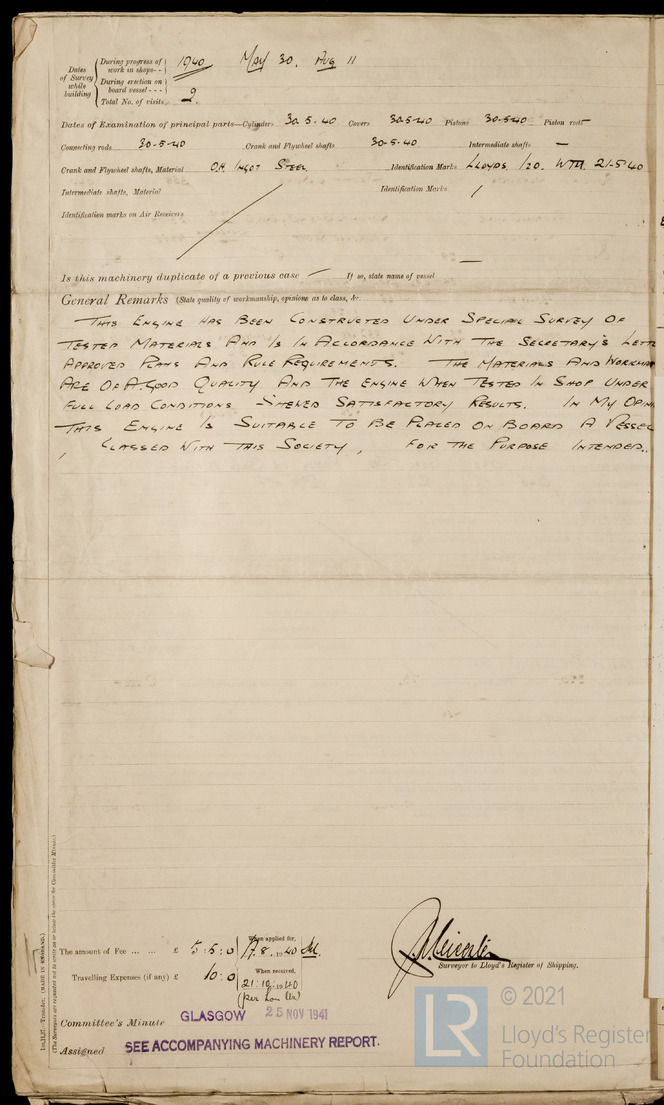 Dates of Survey while building
During progress of work in shops - - 1940 May 30. Aug 11
During erection on board vessel - - -
Total No. of visits 2.
Dates of Examination of principal parts—Cylinders 30.5.40 Covers 30.5.40 Pistons 30.5.40 Piston rods —
Connecting rods 30.5.40 Crank and Flywheel shafts 30.5.40. Intermediate shafts —
Crank and Flywheel shafts, Material O.H. Ingot Steel Identification Marks Lloyds. 120. WTM. 21.5.40
Intermediate shafts, Material Identification Marks /
Identification marks on Air Receivers
Is this machinery duplicate of a previous case — If so, state name of vessel —
General Remarks (State quality of workmanship, opinions as to class, &c.
This Engine Has Been Constructed Under Special Survey Of
Tested Materials And Is In Accordance With The Secretary's Lett
Approved Plans And Rule Requirements. The Materials And Workman
Are Of A Good Quality And The Engine When Tested In Shop Under
Full Load Conditions Shewed Satisfactory Results. In My Opin
This Engine Is Suitable To Be Placed On Board A Vessel
, Classed With This Society, For The Purpose Intended.
The amount of Fee ... ... £ 5:5:0 When applied for, 17.8.1940
Travelling Expenses (if any) £ 10:0 When received, 21.10.1940
Surveyor to Lloyd's Register of Shipping.
Committee's Minute GLASGOW 25 NOV 1941
Assigned SEE ACCOMPANYING MACHINERY REPORT.
(The Surveyors are requested not to write on or below the space for Committee Minute.)
Transfer. (MADE IN ENGLAND.)
LR © 2021
Lloyd's Register
Foundation